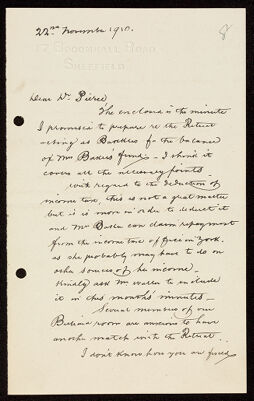 22nd November 1910.
8
17 BROOMHALL ROAD,
SHEFFIELD.
Dear Dr. Pierce
The enclosed is the minute
I promised to prepare re the Retreat
acting as Bankers for the balance
of Mrs Bakers fund. I think it
covers all the necessary points.
With regard to the deduction of
income tax, this is not a great matter
but it is more in order to deduct it
and Mrs Baker can claim repayment
from the income tax office in York.
as she probably may have to do on
other sources of the income.
Kindly ask Mr Waller to include
it in this month's minutes.
Several members of our
Billiard room are anxious to have
another match with the Retreat.
I don't know how you are fixed